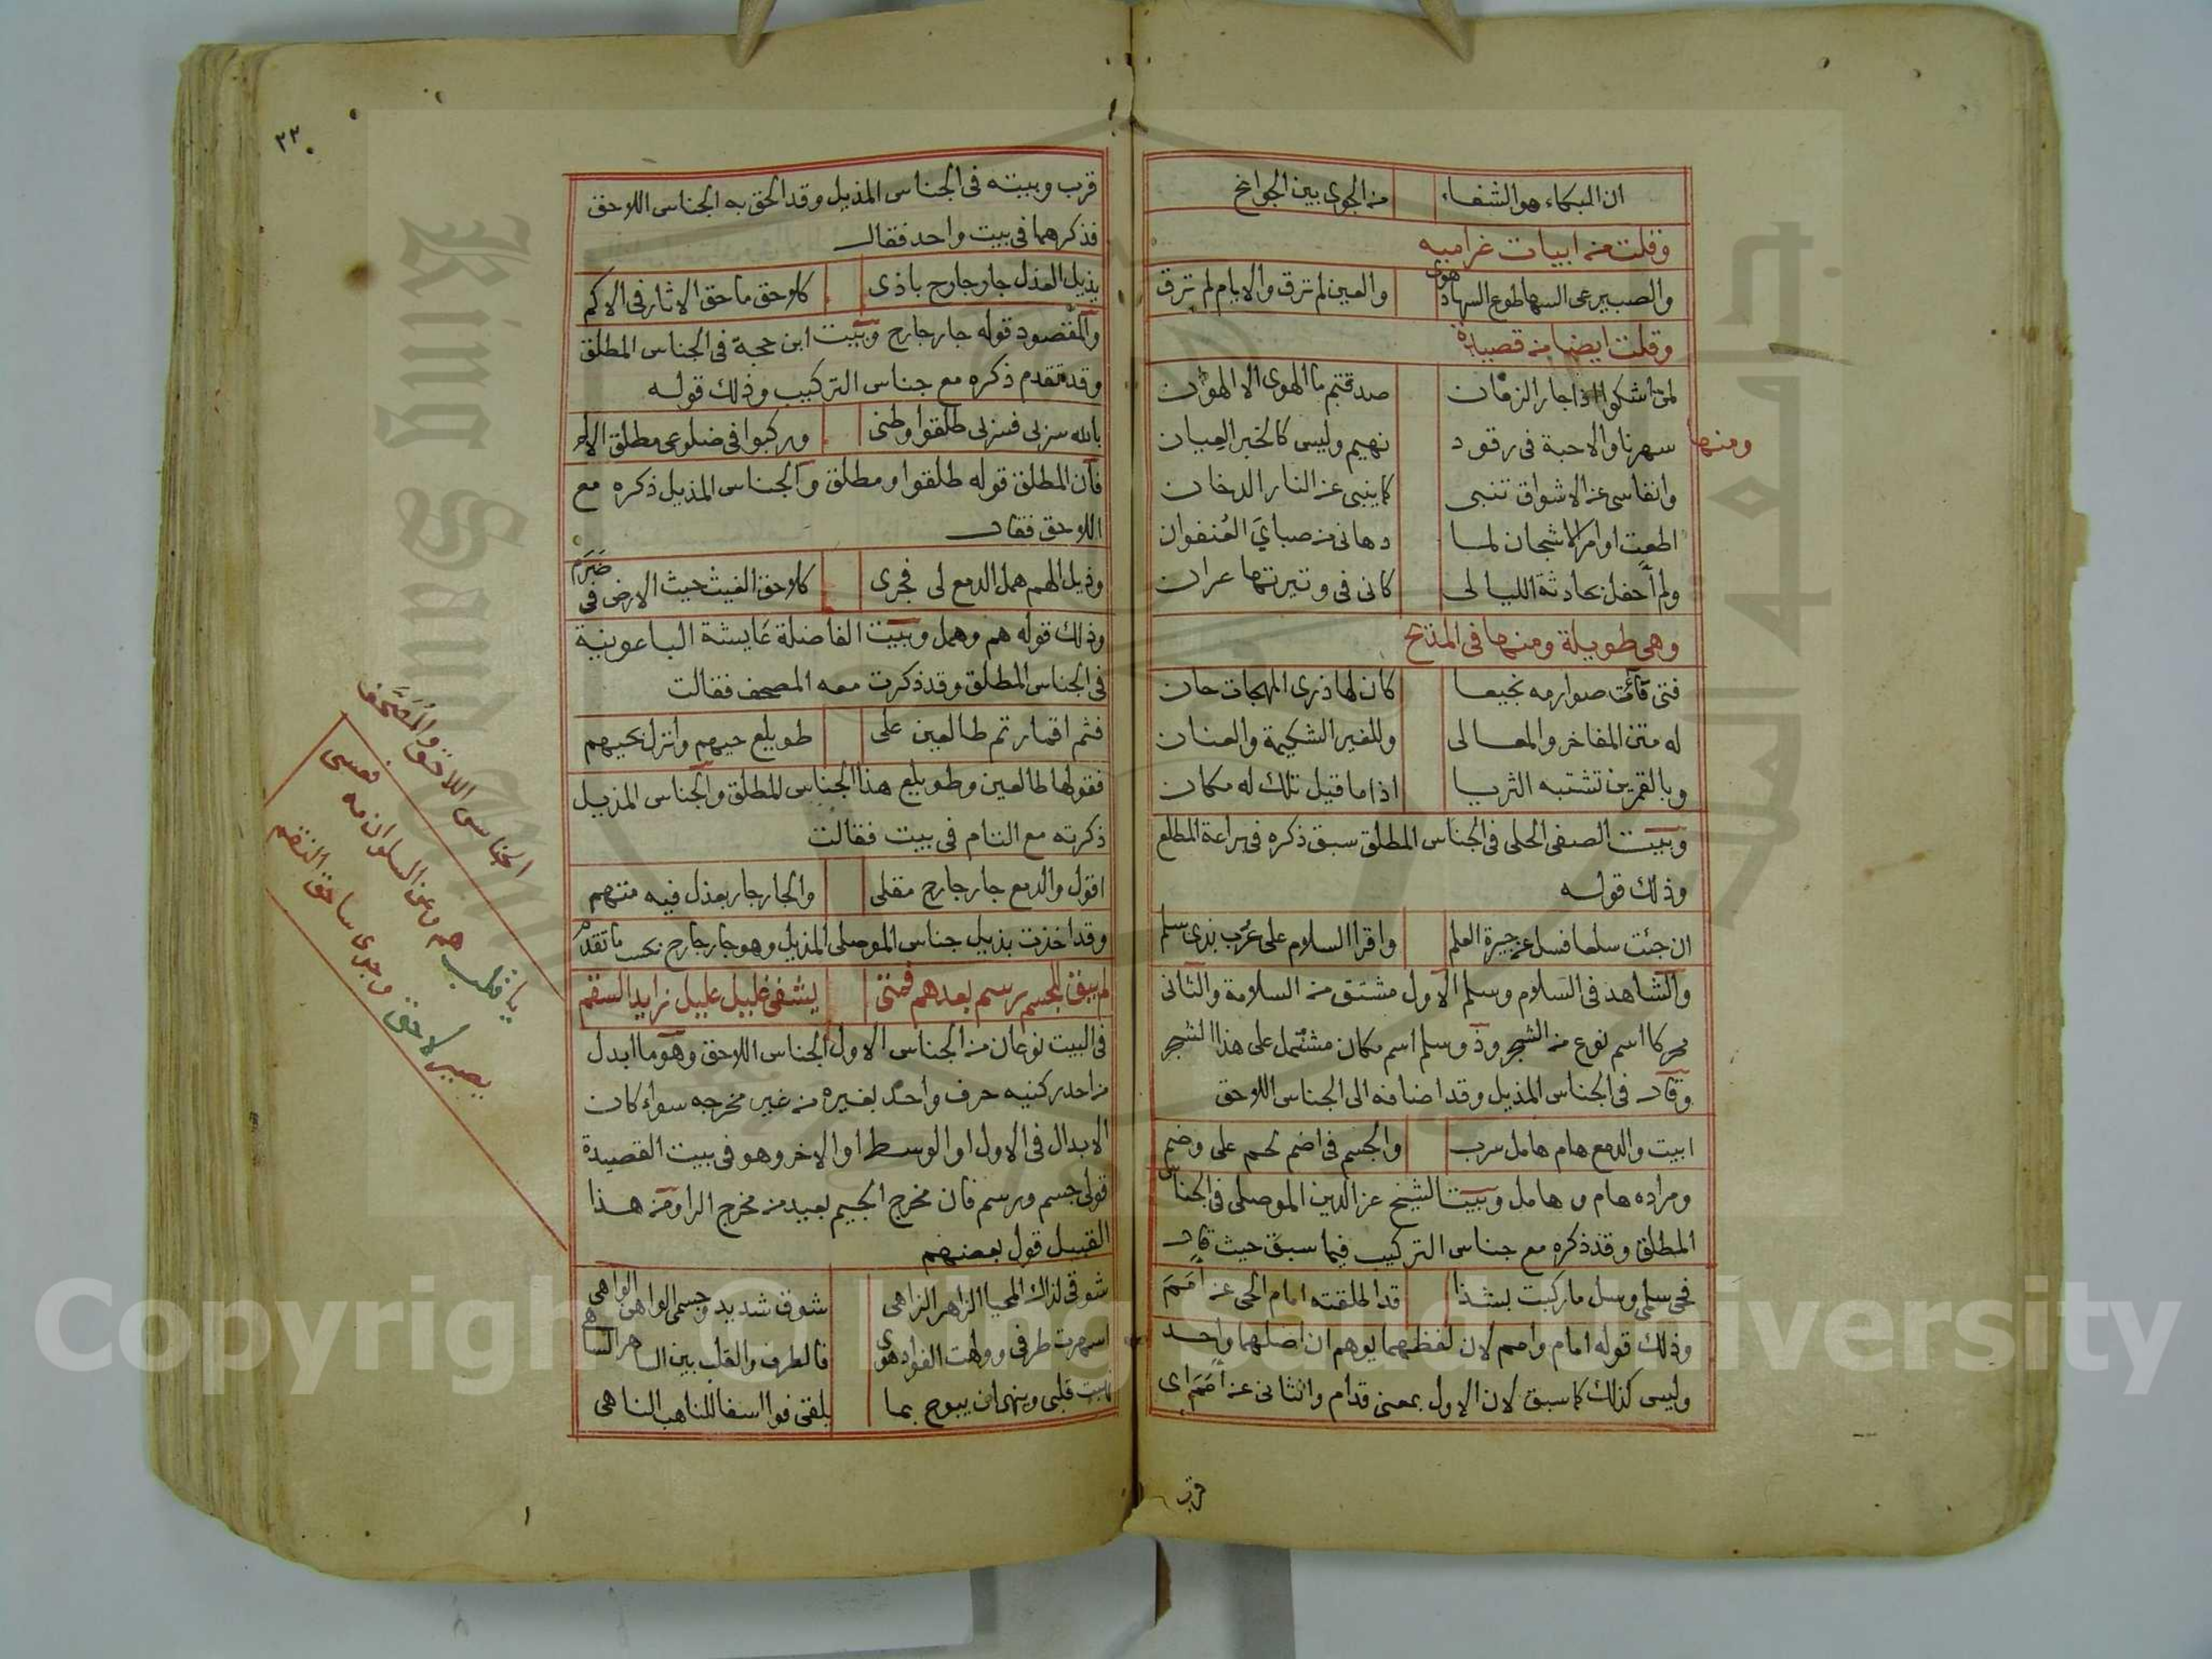 ان البكاء هو الشفاء من الجوى بين الجوانح
وقلت من ابيات غراميه
والصب يرعى السها طوع السهاد هوى والعين لم ترق والايام لم ترق
وقلت ايضا من قصيدة
لمن اشكو اذا جار الزمان صدقتم ما الهوى الا الهوان
ومنها
سهرنا والاحبة فى رقود نهيم وليس كالخبر العيان
وانفاسى عن الاشواق تنبى كما ينبى عن النار الدخان
اطعت اوامر الاشجان لما دهانى من صباى العنفوان
ولم احفل بحادثة الليالى كانى فى وتيرتها عران
وهى طويلة ومنها فى المدح
فتى قآءت صوارمه نجيعا كان لها ذرى المهجات حان
له متن المفاخر والمعالى وللغير الشكيمة والعنان
وبالقمرين تشتبه الثريا اذا ما قيل تلك له مكان
وبيت الصفى الحلى فى الجناس المطلق سبق ذكره فى براعة المطلع
وذلك قوله
ان جئت سلعا فسل عن جيرة العلم واقرا السلام على عرب بذى سلم
والشاهد فى السلام وسلم الاول مشتق من السلامة والثانى
محركا اسم نوع من الشجر وذو سلم اسم مكان مشتمل على هذا الشجر
وقال فى الجناس المذيل وقد اضافه الى الجناس اللاحق
ابيت والدمع هام هامل سرب والجسم فى اضم لحم على وضم
ومراده هام و هامل وبيت الشيخ عز الدين الموصلى فى الجناس
المطلق وقد ذكره مع جناس التركيب فيما سبق حيث قال
فحى سلمى وسل ما ركبت بشذا قد اطلقته امام الحى عن امم
وذلك قوله امام وامم لان لفظهما يوهم ان اصلهما واحد
وليس كذلك كما سبق لان الاول بمعنى قدام والثانى عن امم اى
قرب
٣٣
قرب وبيته فى الجناس المذيل وقد الحق به الجناس اللاحق
فذكرهما فى بيت واحد فقال
يذيل العذل جار جارح باذى كلاحق ماحق الاثار فى الاكم
والمقصود قوله جار جارح وبيت ابن حجة فى الجناس المطلق
وقد تقدم ذكره مع جناس التركيب وذلك قوله
بالله سربى فسربى طلقوا وطنى وركبوا فى ضلوعى مطلق الالم
فان المطلق قوله طلقوا ومطلق والجناس المذيل ذكره مع
اللاحق فقال
وذيل الهم همل الدمع لى فجرى كلاحق الغيث حيث الارض فى ضرم
وذلك قوله هم وهمل وبيت الفاضلة عايشة الباعونية
فى الجناس المطلق وقد ذكرت معه المصحف فقالت
فثم اقمار تم طالعين على طويلع حيهم وانزل بحيهم
فقولها طالعين وطويلع هذا الجناس المطلق والجناس المذيل
ذكرته مع التام فى بيت فقالت
اقول والدمع جار جارح مقلى والجار جار بعذل فيه متهم
وقد اخذت بذيل جناس الموصلى المذيل وهو جار جارح بحسب ما تقدم
لم يبق للجسم رسم بعدهم فمتى يشفى غليل عليل زايد السقم
فى البيت نوعان من الجناس الاول الجناس اللاحق وهو ما ابدل
من احد ركنيه حرف واحد بغيره من غير مخرجه سواء كان
الابدال فى الاول او الوسط او الاخر وهو فى بيت القصيدة
قولى جسم ورسم فان مخرج الجيم بعيد من مخرج الرا ومن هذا
القبيل قول بعضهم
شوقى لذاك المحيا الزاهر الزاهى شوق شديد وجسمى الواهن الواهى
اسهرت طرفى وولهت الفواد هوى فالطرف والقلب بين الساهر الساهى
نهبت قلبى وتنهى ان يبوح بما يلقى فوا اسفا للناهب الناهى
الجناس اللاحق والمصحف